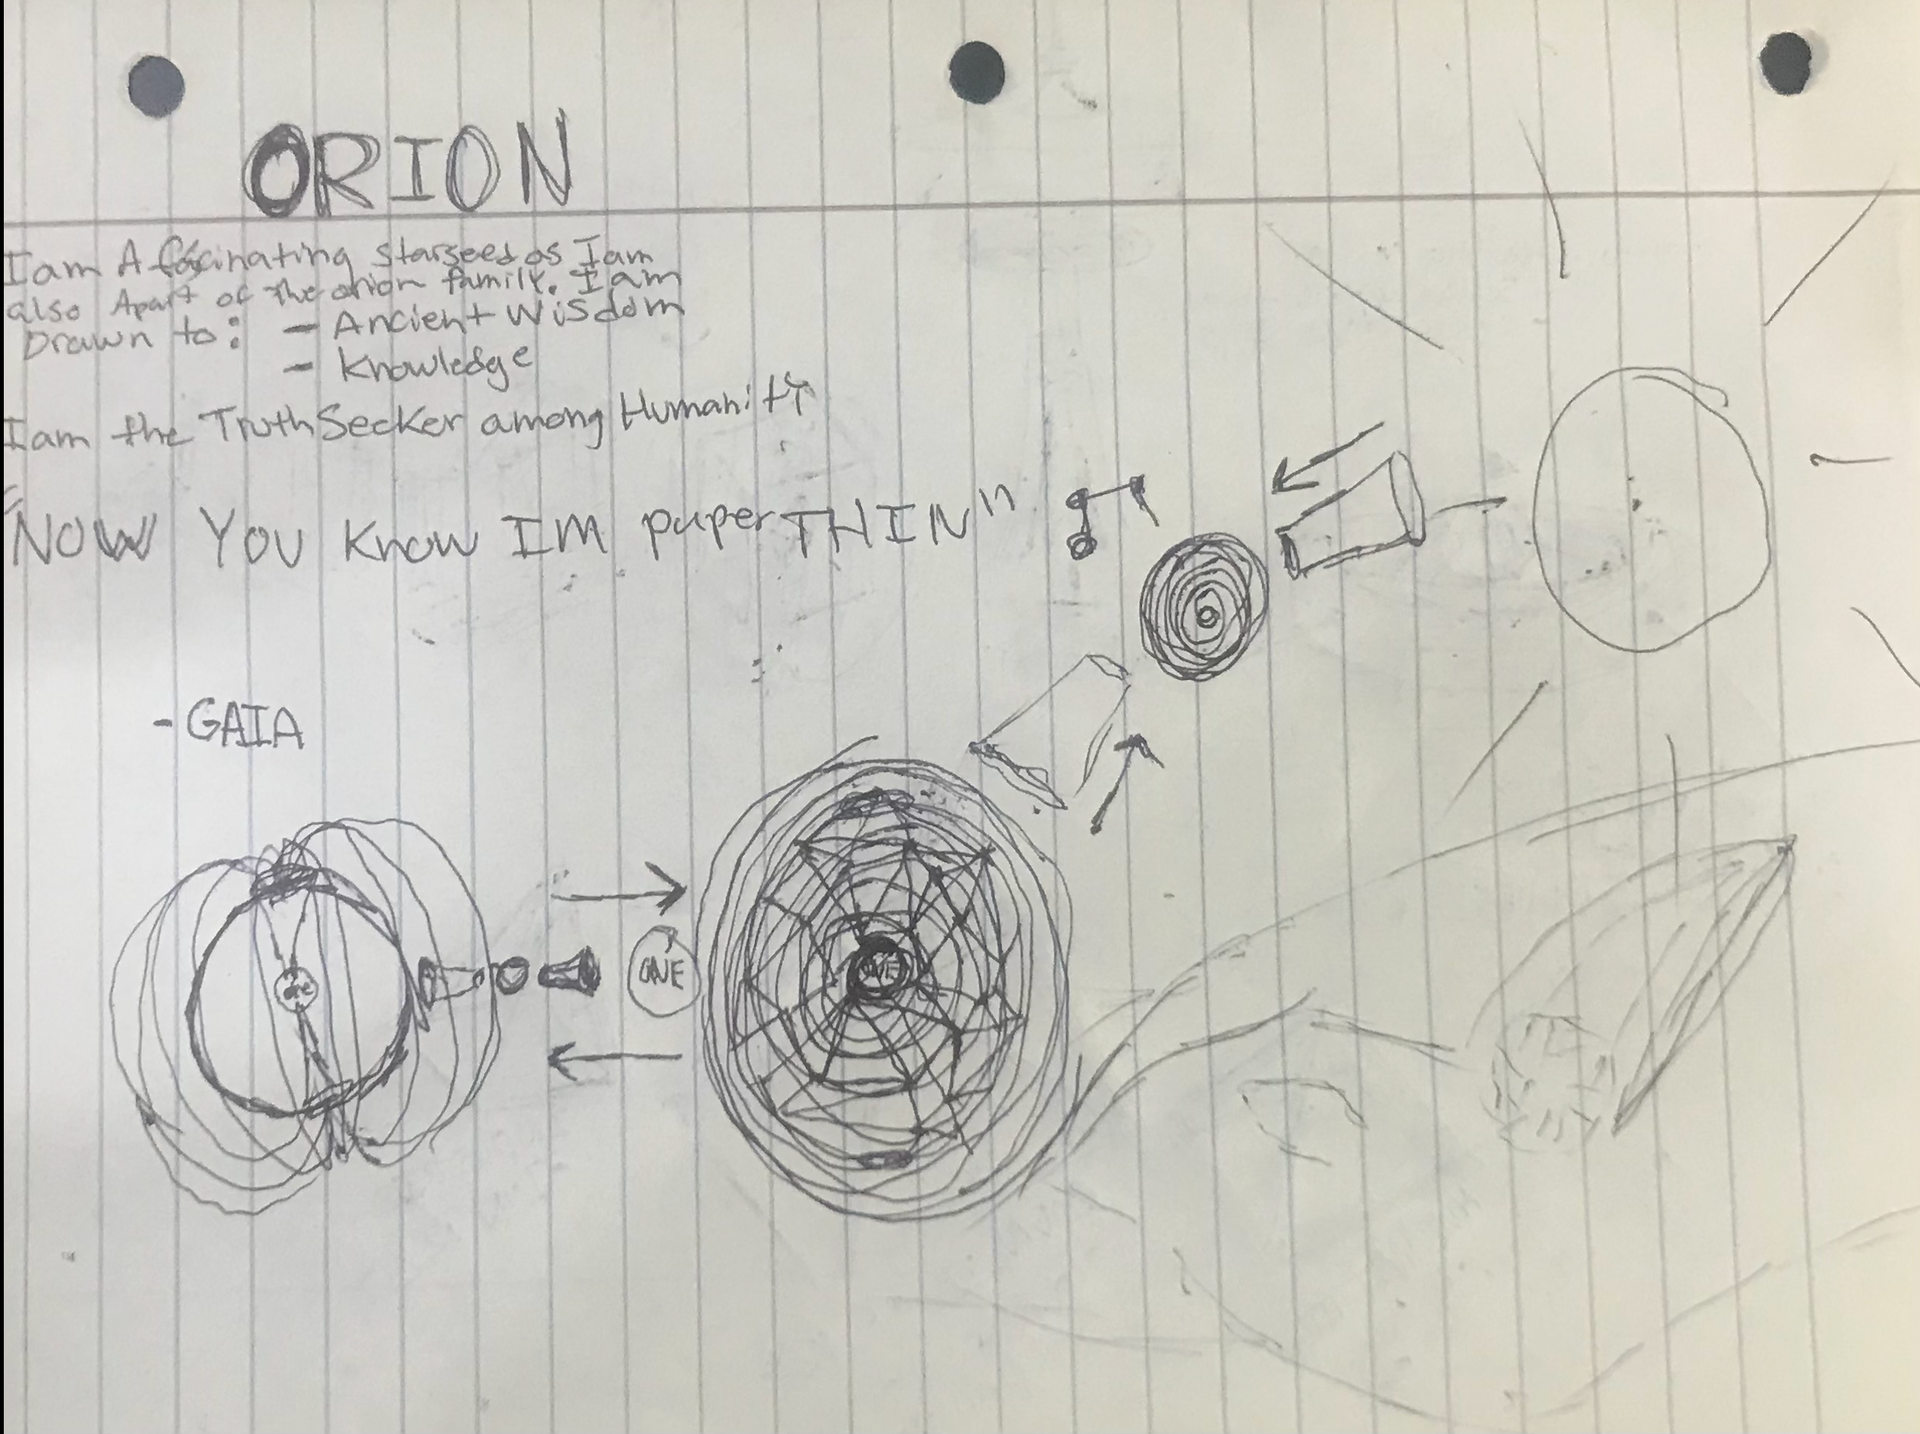 ORION
I am A fascinating starseed as I am
also Apart of the orion family. I am
Drawn to: - Ancient Wisdom
- Knowledge
I am the Truth Seeker among Humanity
"NOW YOU Know IM paper THIN"
- GAIA
one
ONE
ONE